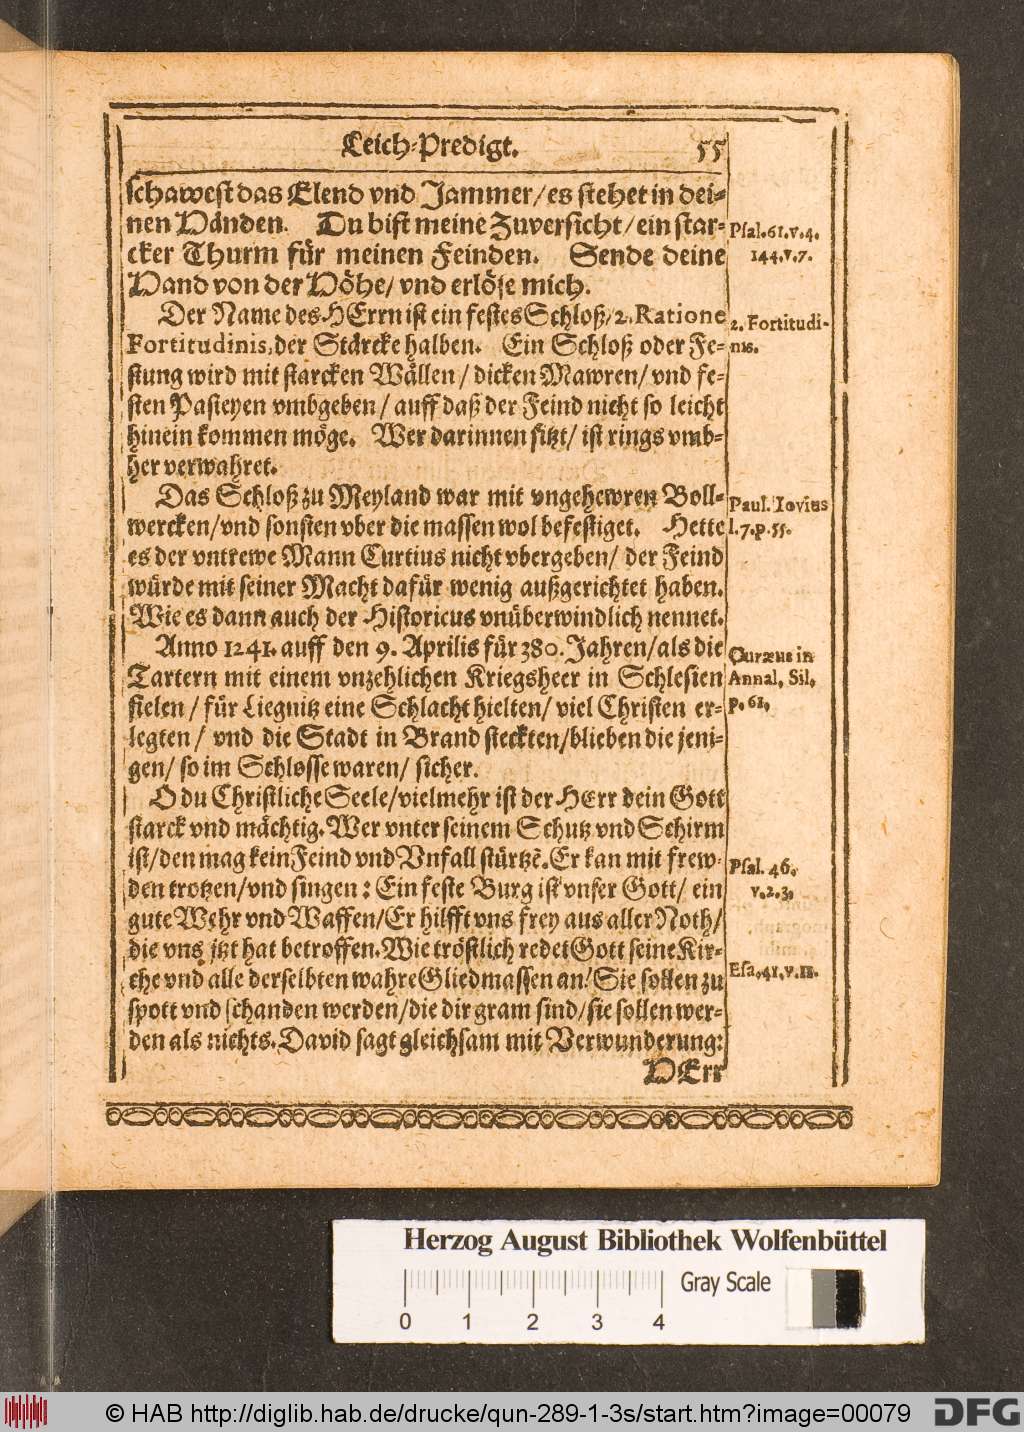 Leich-Predigt. 55
schawest das Elend vnd Jammer/es stehet in dei-
nen Händen. Du bist meine Zuversicht/ein star-
cker Thurm für meinen Feinden. Sende deine
Hand von der Höhe/ vnd erlöse mich.
Psal.61.v.4.
144.v.7.
Der Name des HErrn ist ein festes Schloß/2.Ratione
Fortitudinis,der Stärcke halben. Ein Schloß oder Fe-
stung wird mit starcken Wällen/ dicken Mawren/ vnd fe-
sten Pasteyen vmbgeben/ auff daß der Feind nicht so leicht
hinein kommen möge. Wer darinnen sitzt/ ist rings vmb-
her verwahret.
2. Fortitudi-
nis.
Das Schloß zu Meyland war mit vngehewren Boll-
wercken/vnd sonsten vber die massen wol befestiget. Hette
es der vntrewe Mann Curtius nicht vbergeben/ der Feind
würde mit seiner Macht dafür wenig außgerichtet haben.
Wie es dann auch der Historicus vnüberwindlich nennet.
Paul. Iovius
l.7.p.55.
Anno 1241. auff den 9. Aprilis für 380. Jahren/als die
Tartern mit einem vnzehlichen Kriegsheer in Schlesien
fielen/ für Liegnitz eine Schlacht hielten/ viel Christen er-
legten/ vnd die Stadt in Brand steckten/blieben die jeni-
gen/ so im Schlosse waren/ sicher.
Curæus in
Annal. Sil.
p. 61.
O du Christliche Seele/vielmehr ist der HErr dein Gott
starck vnd mächtig.Wer vnter seinem Schutz vnd Schirm
ist/den mag kein Feind vnd Vnfall stürtzē.Er kan mit frew-
den trotzen/vnd singen: Ein feste Burg ist vnser Gott/ ein
gute Wehr vnd Waffen/Er hilfft vns frey aus aller Noth/
die vns jtzt hat betroffen.Wie tröstlich redet Gott seine Kir-
che vnd alle derselbten wahre Gliedmassen an/Sie sollen zu
spott vnd schanden werden/die dir gram sind/sie sollen wer-
den als nichts.David sagt gleichsam mit Verwunderung:
HErr
Psal. 46.
v.2.3.
Esa.41.v.11.
Herzog August Bibliothek Wolfenbüttel
Gray Scale
0 1 2 3 4
© HAB http://diglib.hab.de/drucke/qun-289-1-3s/start.htm?image=00079
DFG